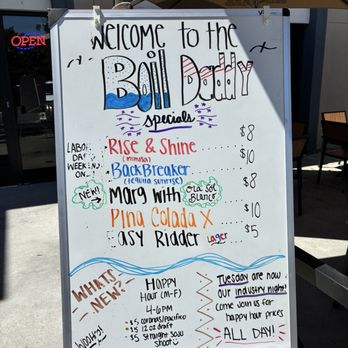 OPEN
Welcome to the
Boil Daddy
Specials
LABOR
DAY
WEEKEND
ON
Rise & Shine $8
(mimosa)
BackBreaker $10
(tequila sunrise)
NEW
Mary with Ola Sol Blanco $8
Pina Colada X $10
Easy Ridder Lager $5
WHATS
NEW?
Happy
Hour (M-F)
4-6PM
$5 coronas/Pacifico
$5 12 oz draft
$5 Straight Soju
shoot
Tuesday are now
our industry night!
come join us for
happy hour prices
ALL DAY!